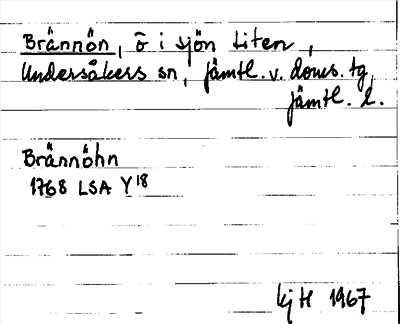 Brännön, ö i sjön Liten,
Undersåkers sn, Jämtl. v. doms. tg,
Jämtl. l.
Brännöhn
1768 LSA Y18
kjH 1967